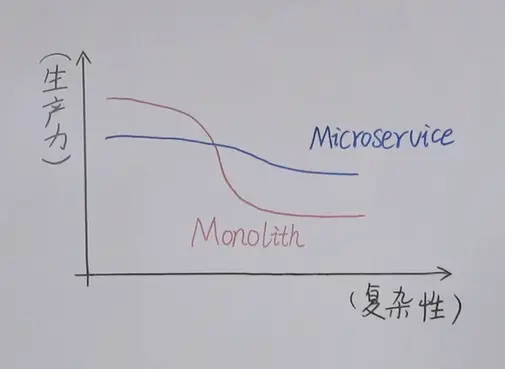 (生产力)
Microservice
Monolith
(复杂性)